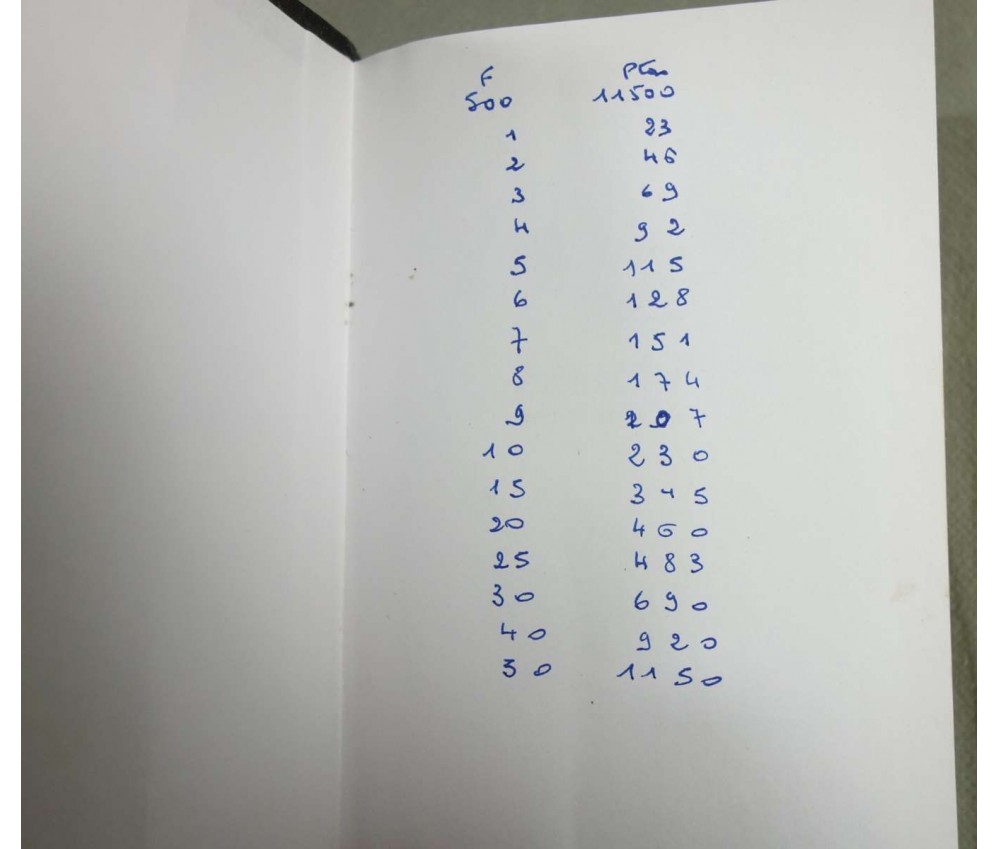 F Ptas
500 11500
1 23
2 46
3 69
4 92
5 115
6 128
7 151
8 174
9 207
10 230
15 345
20 460
25 483
30 690
40 920
50 1150